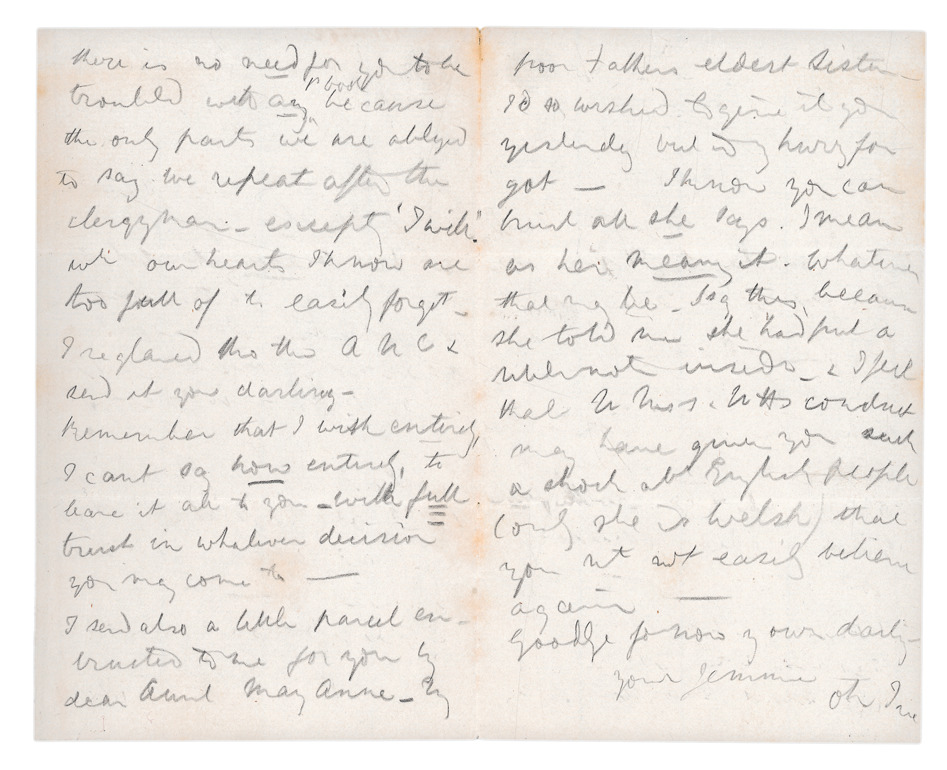 there is no need for you to be
troubled with any book because
the only parts we are obliged
to say we repeat after the
clergyman - except 'I will'.
our hearts I know are
too full of to easily forget -
I reglanced thro the
send it you darling -
Remember that I wish entirely,
I cant say how entirely, to
leave it all to you - with full
trust in whatever decision
you may come to —
I send also a little parcel en-
trusted to me for you by
dear Aunt Mary Anne - My
poor Fathers eldest sister -
I so wished to give it you
yesterday but in my hurry for
got — I know you can
trust all she says. I mean
as her meaning it. Whatever
that may be - I say this, because
she told me she had put a
note inside - & I feel
that conduct
may have given you such
a shock abt English people
(only she is Welsh) that
you not easily believe
again. —
Goodbye for now my own darling -
your Jemmie
oh I